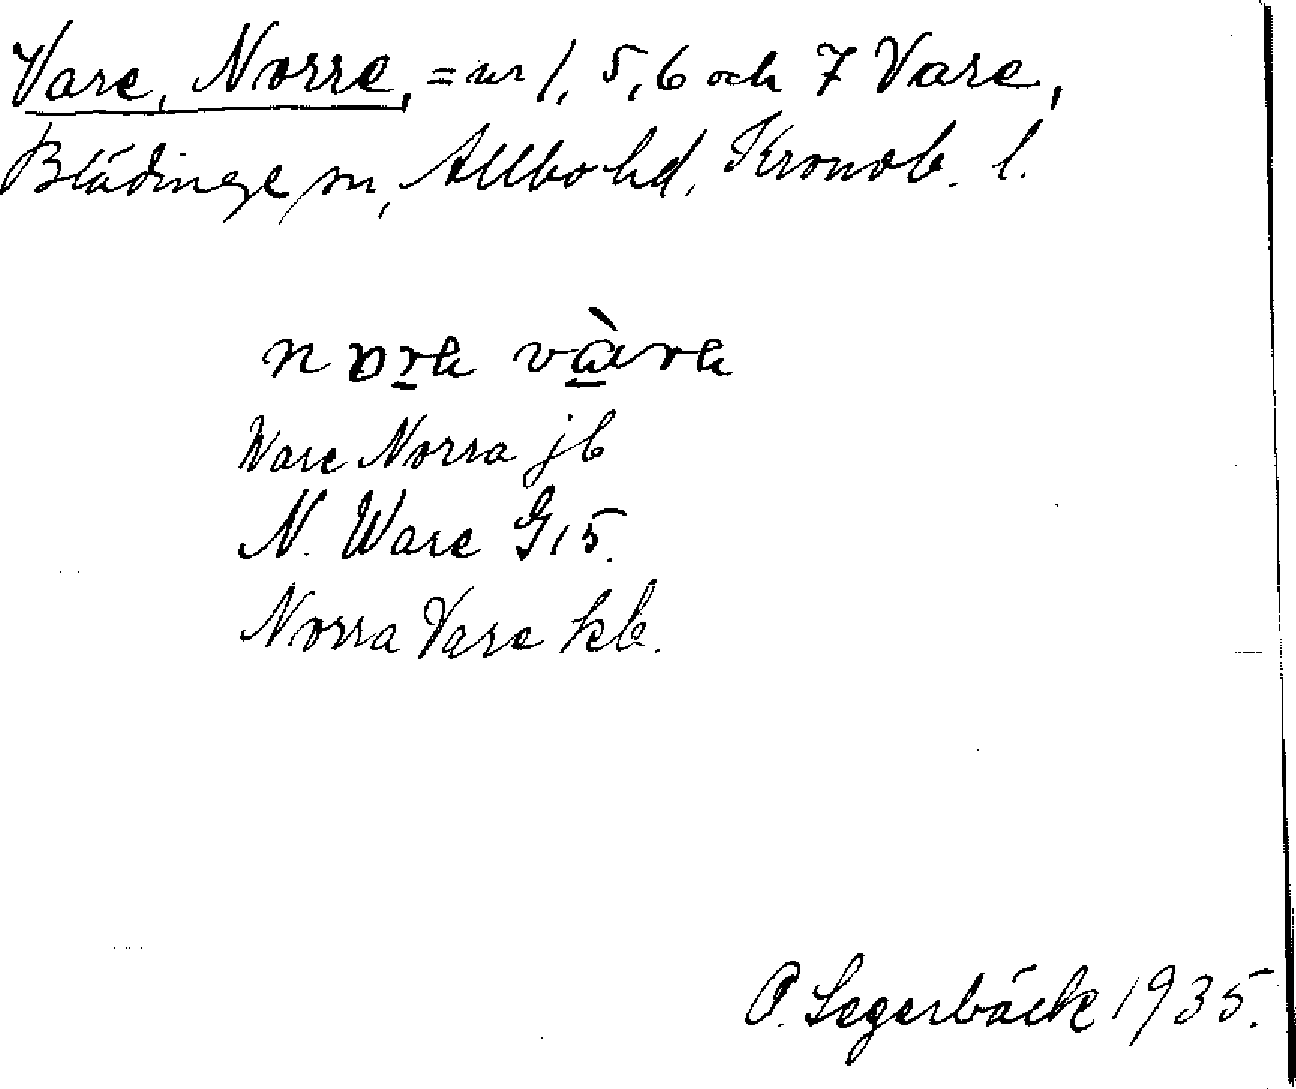 Vare, Norre, = nr 1, 5, 6 och 7 Vare,
Blädinge sn, Allbo hd, Kronob. l.
Ware Norra jb
N. Ware G15.
Norra Vare kb.
P. Segerbäck 1935.